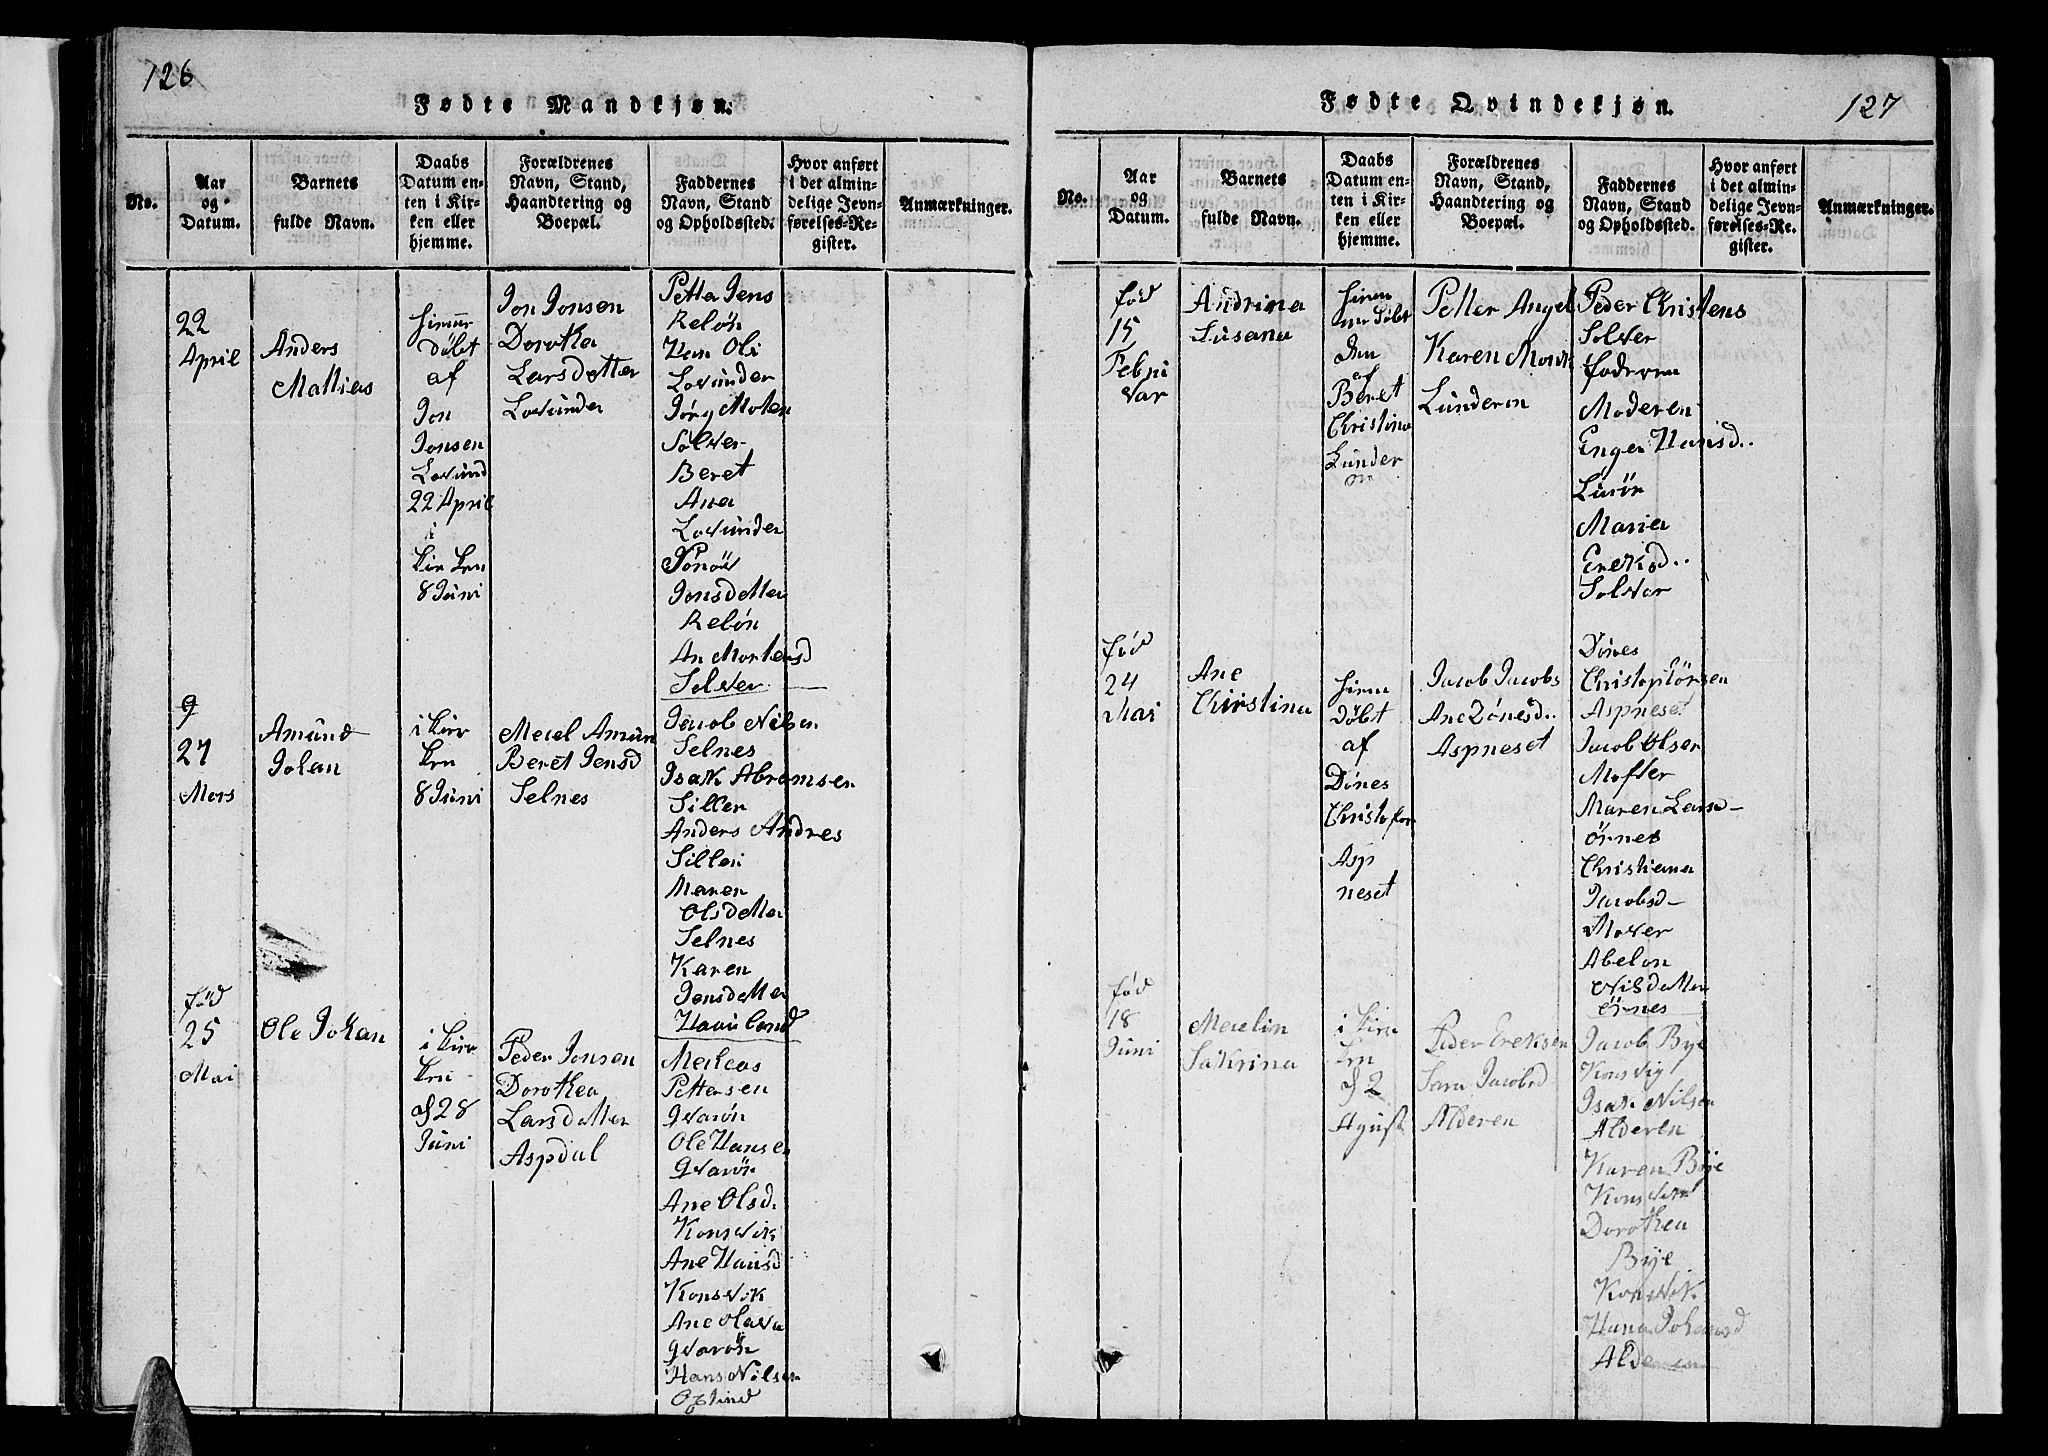 126
Fødte Mandkjøn.
No.
Aar
og
Datum.
Barnets
fulde Navn.
Daabs
Datum en-
ten i Kir-
ken eller
hjemme.
Forældrenes
Navn, Stand,
Haandtering og
Boepæl.
Faddernes
Navn, Stand
og Opholdssted.
Hvor anført
i det almin-
delige Jevn-
førelses-Re-
gister.
Anmærkninger.
22
April
Anders
Mathias
døbt
af
Jon
Jonsen
Lovund
22 April
i
kirken
8 Juni
Jon Jonsen
Dorothea
Larsdatter
Lovunden
Petter Jens
Reløn
Han Ols
Lovunden
Jørg Moten
Solver
Beret
Ana
Lovunden
Jonsdatter
Reløn
An Mortensd
Selver
9
27
Mors
Amund
Johan
i kirr
ken
8 Juni
Meiel Amun
Beret Jensd
Selnes
Jacob Nilsen
Selnes
Isak Abramsen
Siller
Anders Andres
Silleri
Maren
Olsdatter
Selnes
Karen
Jensdatter
Hauiland
fød
25
Mai
Ole Johan
i kirr
ken
d 28
Juni
Peder Jonsen
Dorothea
Larsdatter
Aspdal
Meheas
Pettersen
Qvarøn
Ole Hansen
Qvarøn
Ane Olsd.
Konsvik
Ane Hansd
Konsvik
Ane Olava
Qvarøn
Hans Nilsen
127
Fødte Qvindekjøn.
No.
Aar
og
Datum.
Barnets
fulde Navn.
Daabs
Datum en-
ten i Kir-
ken eller
hjemme.
Forældrenes
Navn, Stand,
Haandtering og
Boepæl.
Faddernes
Navn, Stand
og Opholdssted.
Hvor anført
i det almin-
delige Jevn-
førelses-Re-
gister.
Anmærkninger.
fød
15
Febru
var
Andrina
Susana
hiem
me døbt
den
af
Beret
Christina
Lunder
on
Petter Angel
Karen Monk
Lunderon
Peder Christens
Solver
faderen
Moderen
Engen Hansd..
Lurøn
Maria
Ereksd..
Solvar
fød
24
Mai
Ane
Christina
hiem
døbt
af
Dónes
Christofer
Asp
neset
Jacob Jacobs
Ane Zónesd..
Aspneset
Dónes
Aspneset
Jacob Olsen
Mofter
Maren Larsd-
Ørnes
Christiana
Jacobsd-
Mover
Abelon
Nilsdatter
Ørnes
fød
18
Juni
Merelin
Sakrina
i kirr
ken
d 2
Agust
Peder Ereksen
Sara Jacobsd
Alderen
Jacob Bye
Konsvig
Isak Nilsen
Alderen
Karen Bye
Konsvik
Dorothea
Bye
Konsvik
Hana Johansd
Alderen